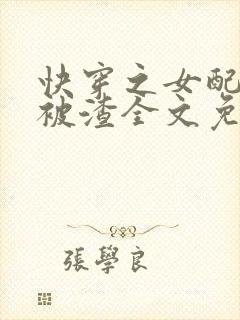 快穿之女配
被渣全文免
張學良